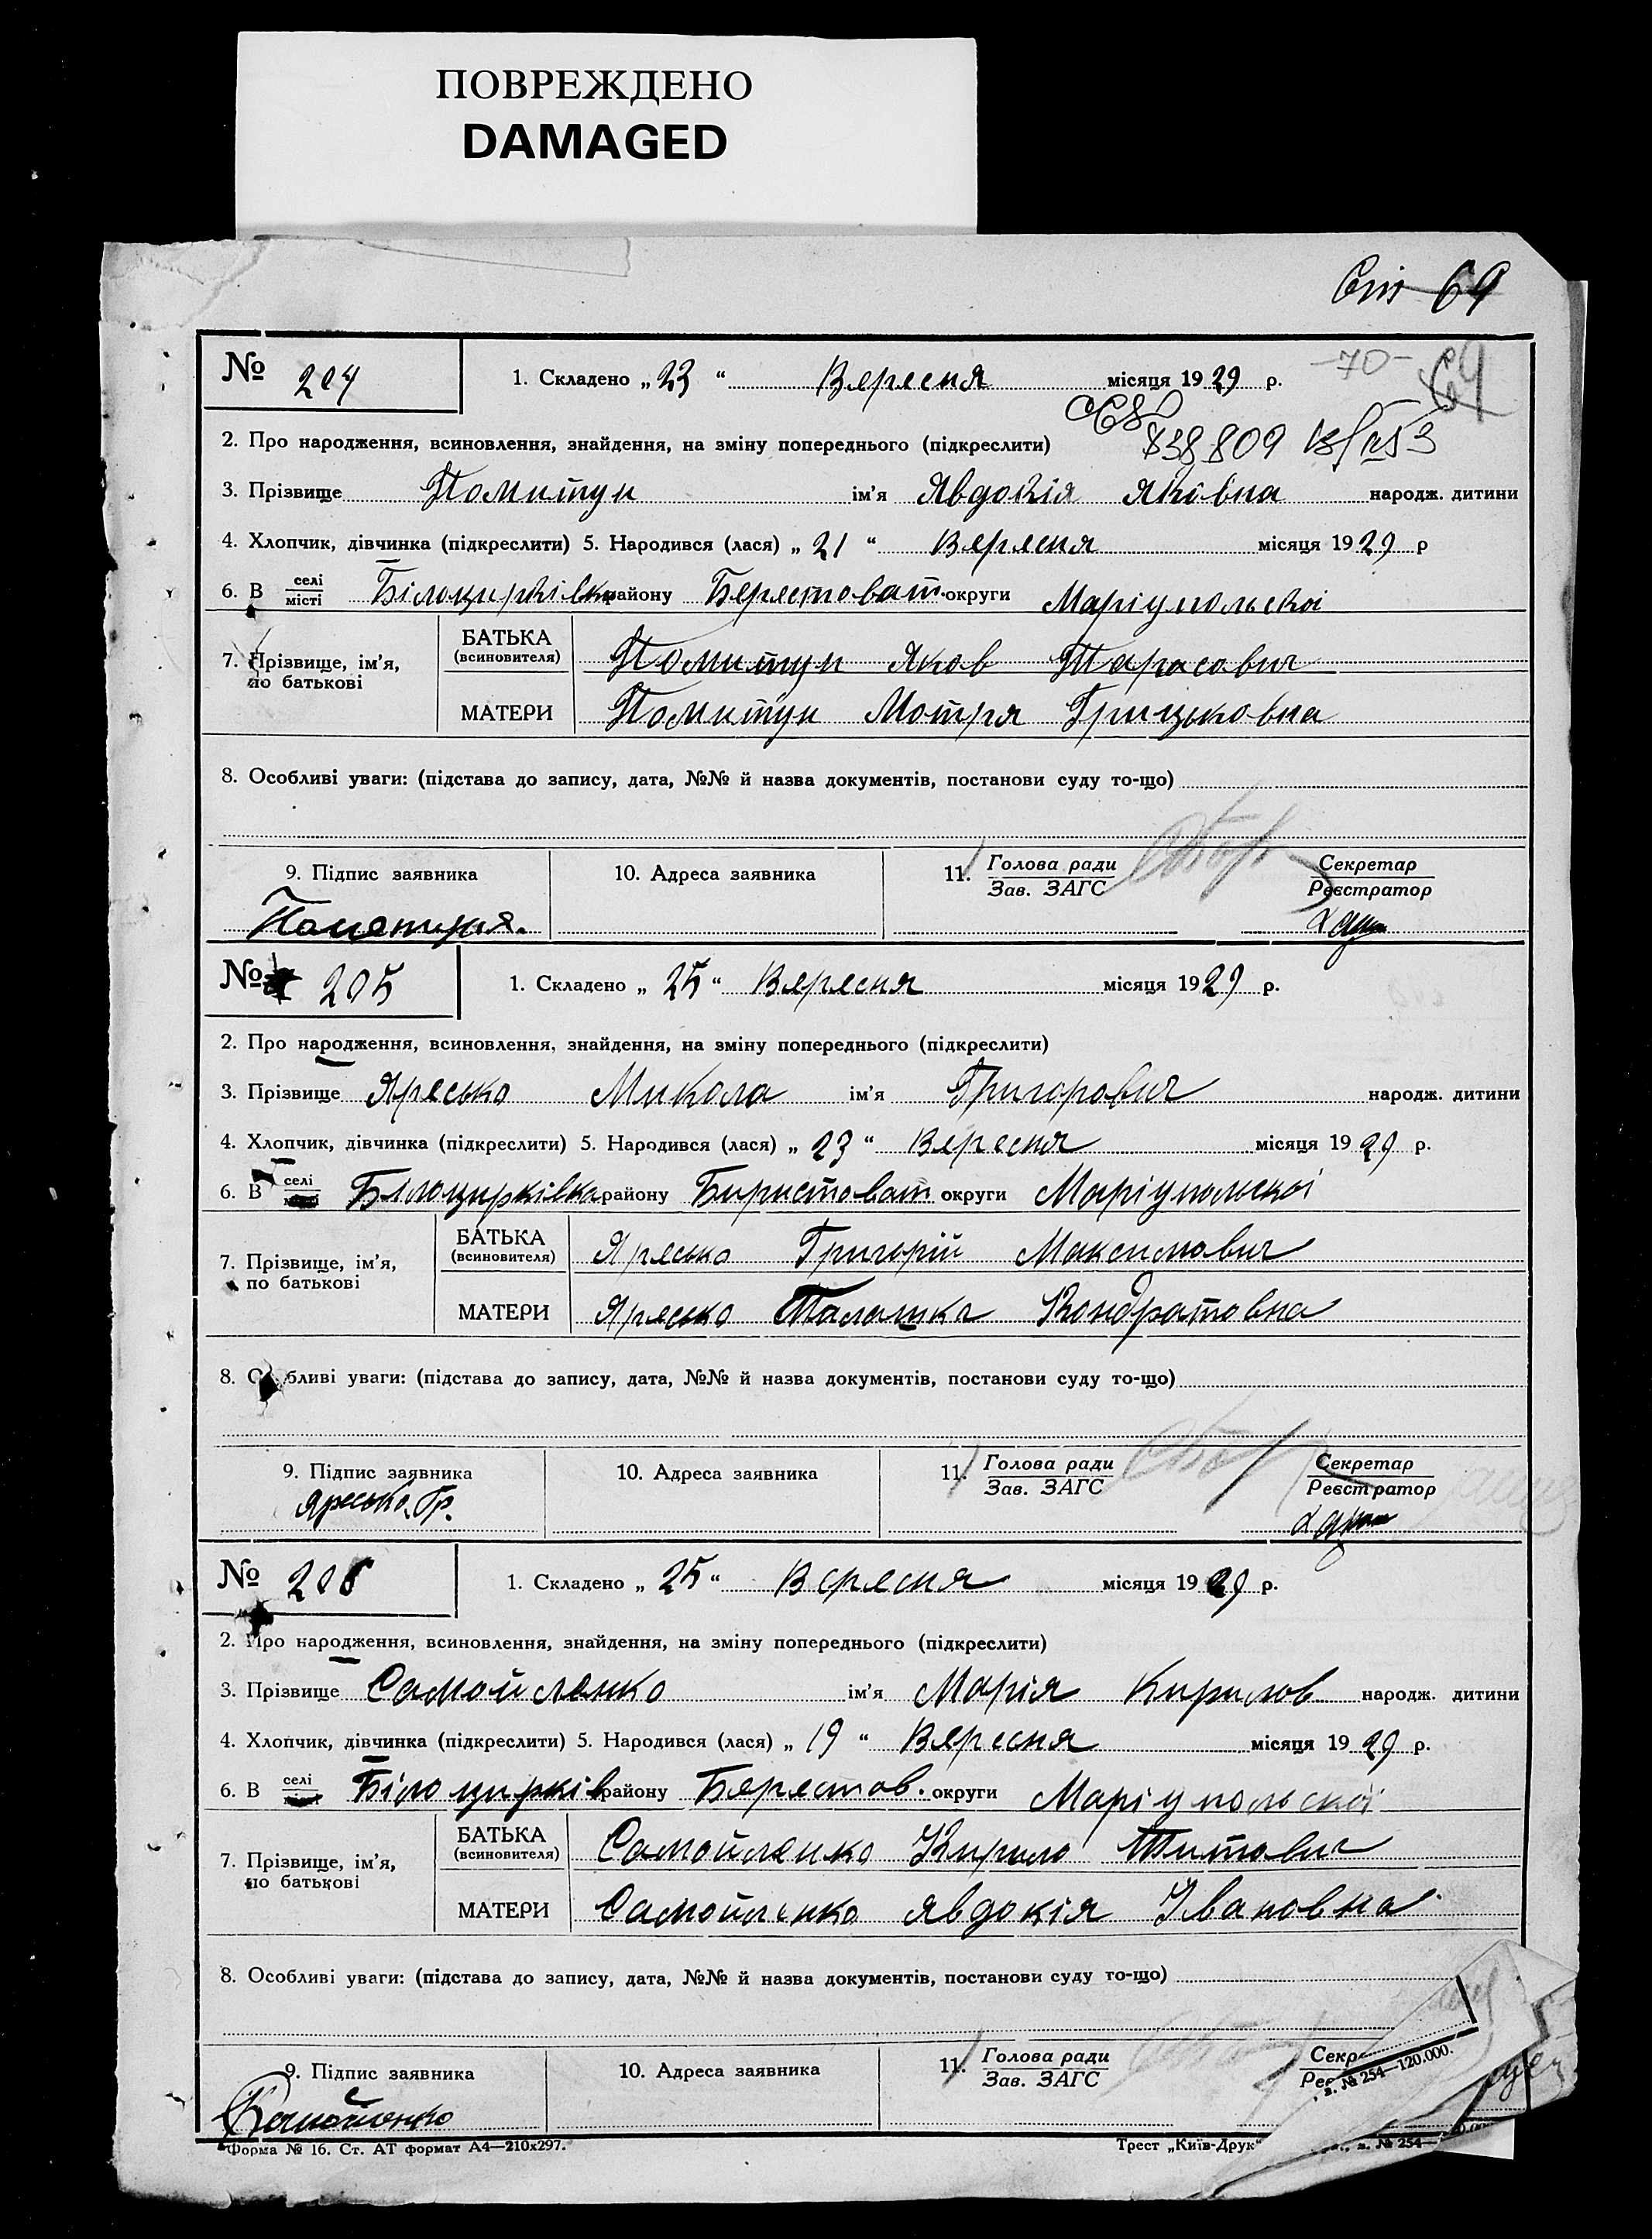 ПОВРЕЖДЕНО
DAMAGED
69
№ 204 1. Складено „ 23 “ Вересня місяця 1929 р. -70- 69
2. Про народження, всиновлення, знайдення, на зміну попереднього (підкреслити) 838809
3. Прізвище Помитун ім'я Явдокія Яківна народж. дитини
4. Хлопчик, дівчинка (підкреслити) 5. Народився (лася) „ 21 “ Вересня місяця 1929 р
6. В селі місті Білоцирківка району Берестоват. округи Маріупольскої
7. Прізвище, ім'я, по батькові БАТЬКА (всиновителя) Помитун Яков Тарасович
МАТЕРИ Помитун Мотря Грицьковна
8. Особливі уваги: (підстава до запису, дата, №№ й назва документів, постанови суду то-що)
9. Підпис заявника 10. Адреса заявника 11. Голова ради Зав. ЗАГС Секретар Реєстратор
№ 205 1. Складено „ 25 “ Вересня місяця 1929 р.
2. Про народження, всиновлення, знайдення, на зміну попереднього (підкреслити)
3. Прізвище Яресько Микола ім'я Григорович народж. дитини
4. Хлопчик, дівчинка (підкреслити) 5. Народився (лася) „ 23 “ Вересня місяця 1929 р.
6. В селі Білоцирківка району Биристоват округи Маріупольскої
7. Прізвище, ім'я, по батькові БАТЬКА (всиновителя) Яресько Григорій Максимович
МАТЕРИ Яресько Палашка Кондратовна
8. Особливі уваги: (підстава до запису, дата, №№ й назва документів, постанови суду то-що)
9. Підпис заявника 10. Адреса заявника 11. Голова ради Зав. ЗАГС Секретар Реєстратор
Яресько. Гр.
№ 206 1. Складено „ 25 “ Вересня місяця 1929 р.
2. Про народження, всиновлення, знайдення, на зміну попереднього (підкреслити)
3. Прізвище Самойленко ім'я Марія Кирилов народж. дитини
4. Хлопчик, дівчинка (підкреслити) 5. Народився (лася) „ 19 “ Вересня місяця 1929 р.
6. В селі Білоцирків району Берестов. округи Маріупольскої
7. Прізвище, ім'я, по батькові БАТЬКА (всиновителя) Самойленко Кирило Титович
МАТЕРИ Самойленко Явдокія Івановна
8. Особливі уваги: (підстава до запису, дата, №№ й назва документів, постанови суду то-що)
9. Підпис заявника 10. Адреса заявника 11. Голова ради Зав. ЗАГС
з. № 254—120.000.
Самойленко
Форма № 16. Ст. АТ формат А4—210х297. Трест „Київ-Друк“ з. № 254—